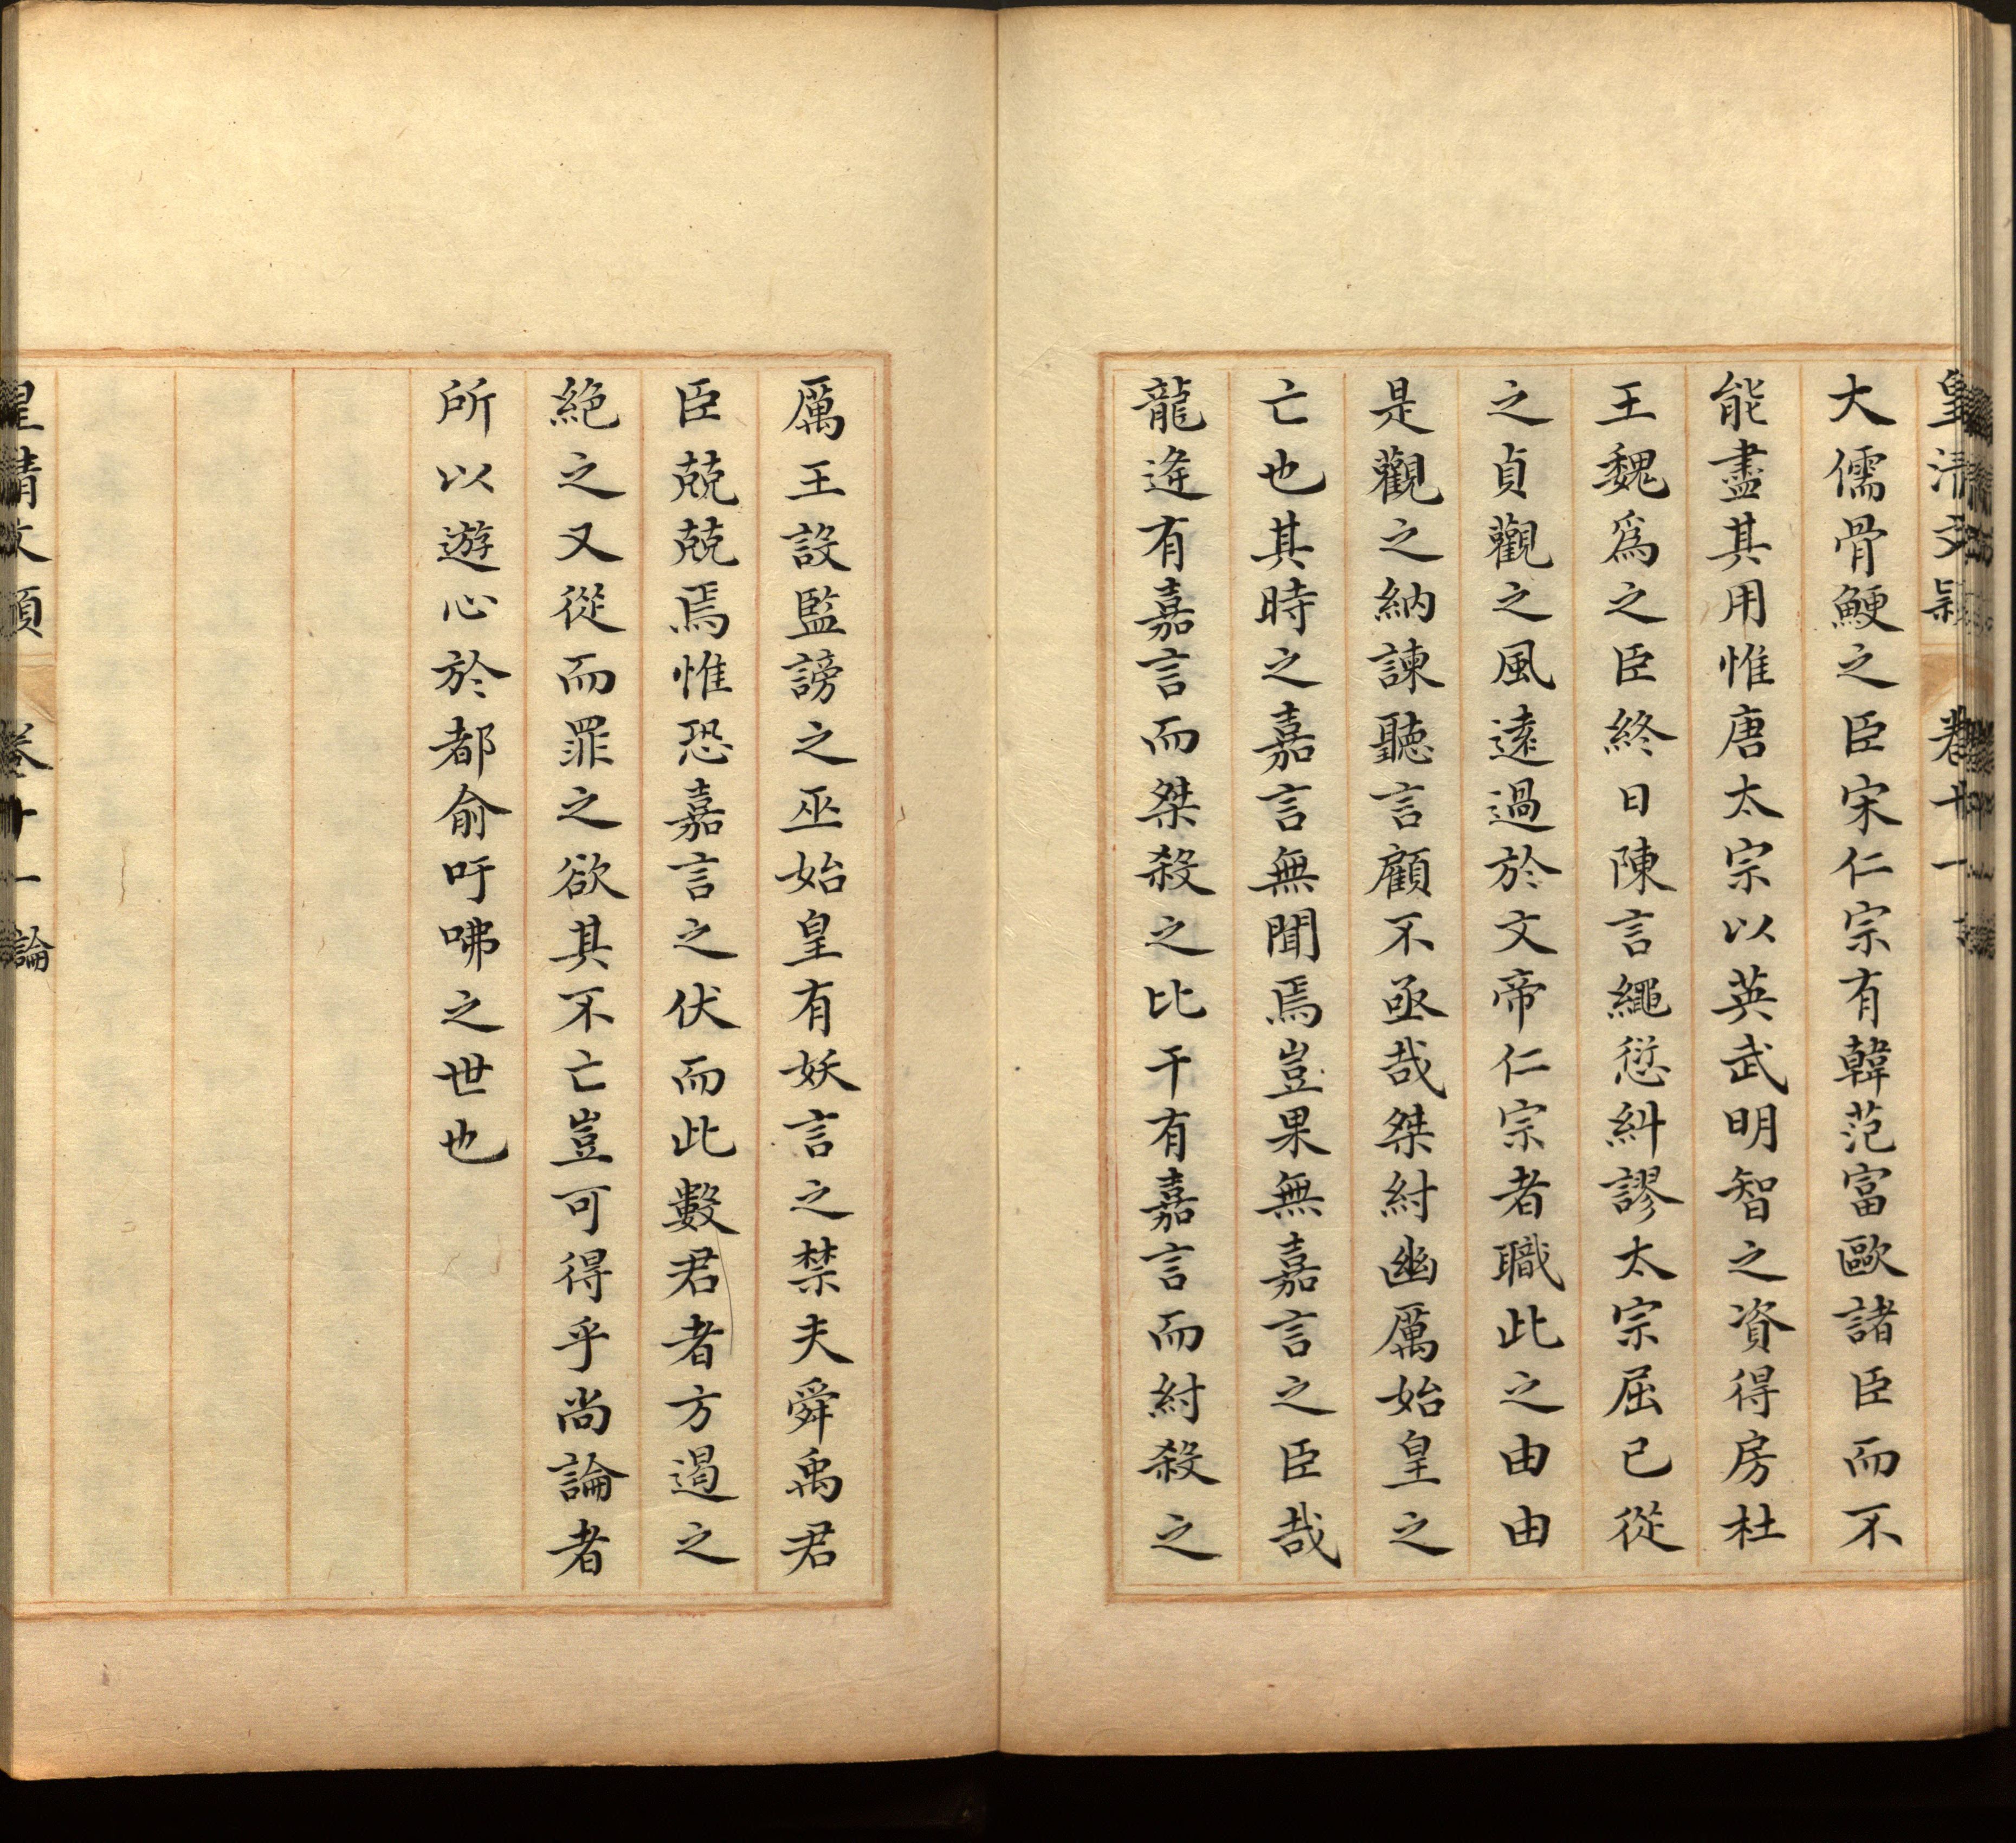 皇清文穎 卷十一
大儒骨鯁之臣宋仁宗有韓范富歐諸臣而不
能盡其用惟唐太宗以英武明智之資得房杜
王魏為之臣終日陳言繩愆糾謬太宗屈已從
之貞觀之風遠過於文帝仁宗者職此之由由
是觀之納諫聽言顧不亟哉桀紂幽厲始皇之
亡也其時之嘉言無聞焉豈果無嘉言之臣哉
龍逄有嘉言而桀殺之比干有嘉言而紂殺之
厲王設監謗之巫始皇有妖言之禁夫舜禹君
臣兢兢焉惟恐嘉言之伏而此數君者方遏之
絶之又從而罪之欲其不亡豈可得乎尚論者
所以遊心於都俞吁咈之世也
皇清文穎 卷十一論